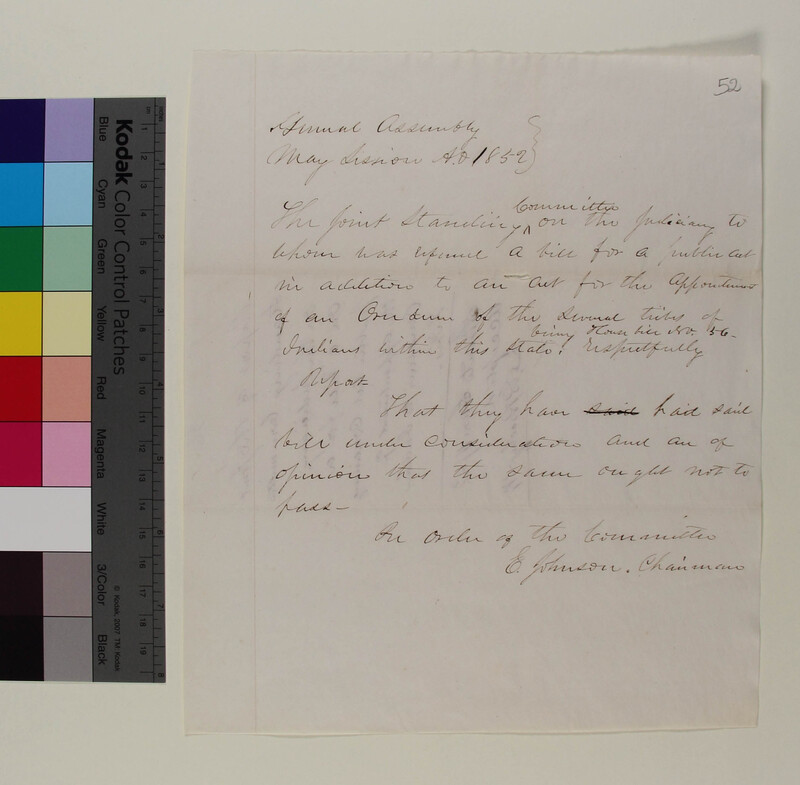 52
General Assembly
May Session A.D 1852
The Joint Standing Committee on the Judiciary to
whom was referred a bill for a public act
in addition to an act for the appointment
of an Overseer of the several tribes of
being House bill No. 56-
Indians within this State: Respectfully
Report
That they have said had said
bill under consideration and are of
opinion that the same ought not to
pass-
Per order of the Committee
E. Johnson. Chairman
Kodak Color Control Patches
Blue
Cyan
Green
Yellow
Red
Magenta
White
3/Color
Black
© Kodak, 2007 TM: Kodak
1 2 3 4 5 6 7 8 9 10 11 12 13 14 15 16 17 18 19